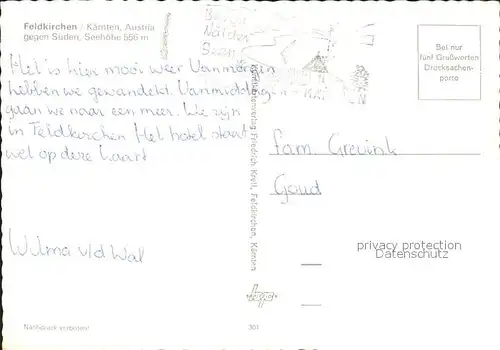 Feldkirchen / Kärnten, Austria
gegen Süden, Seehöhe 556 m
Berge
Wälder
Seen
Bei nur
fünf Grußworten
Drucksachen-
porto
Het is hier mooi weer Vanmorgen
hebben we gewandeld. Vanmiddag
gaan we naar een meer. We zijn
in Feldkirchen Het hotel staat
wel op deze kaart
Wilma v/d Wal
fam. Grevink
Goud
Friedrich Kreil, Feldkirchen, Kärnten
privacy protection
Datenschutz
Nachdruck verboten!
301